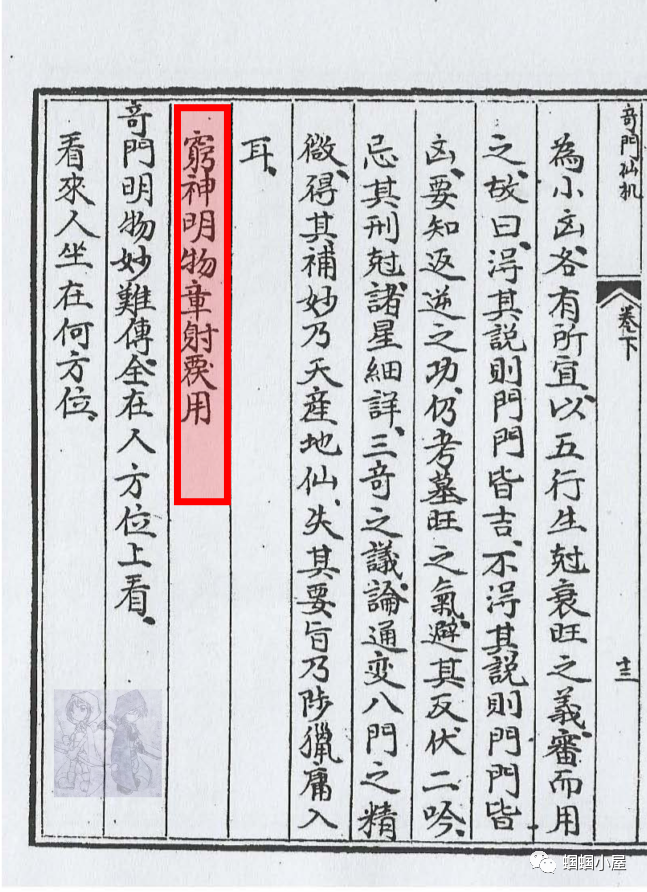 奇門仙机
卷下
十二
為小凶各有所宜、以五行生尅衰旺之義審而用
之、故曰、淂其説則門門皆吉、不淂其説則門門皆
凶、要知返逆之功、仍考墓旺之氣、避其反伏二吟、
忌其刑尅、諸星細詳、三奇之議論通变八門之精
微、得其補妙乃天産地仙、失其要旨乃陟獵庸人
耳、
窮神明物章射覆用
奇門明物妙難傳、全在人方位上看、
看來人坐在何方位、
蝈蝈小屋